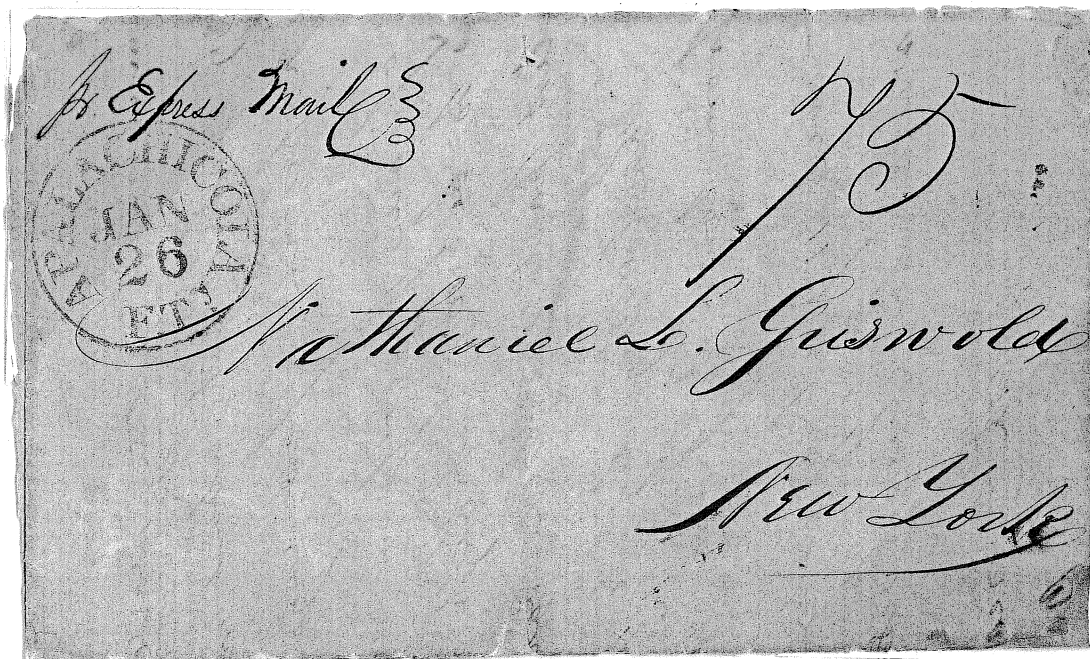 pr. Express Mail
75
APALACHICOLA
JAN
26
F.T.
Nathaniel L. Griswold
New York